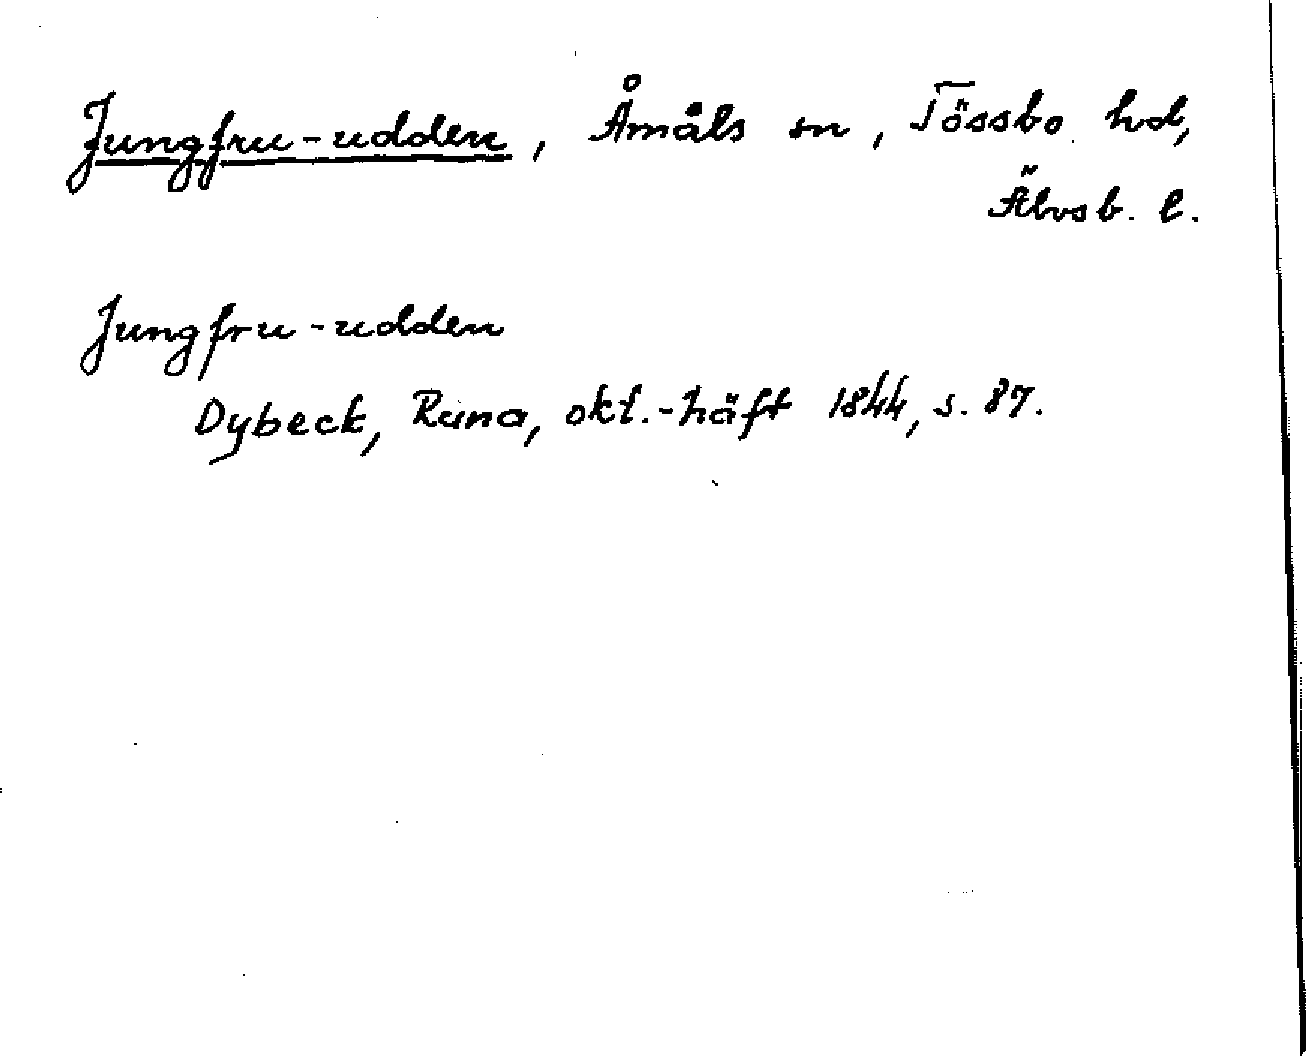 Jungfru-udden, Åmåls sn, Tössbo hd,
Älvsb. l.
Jungfru-udden
Dybeck, Runa, okt.-häft 1844, s. 87.